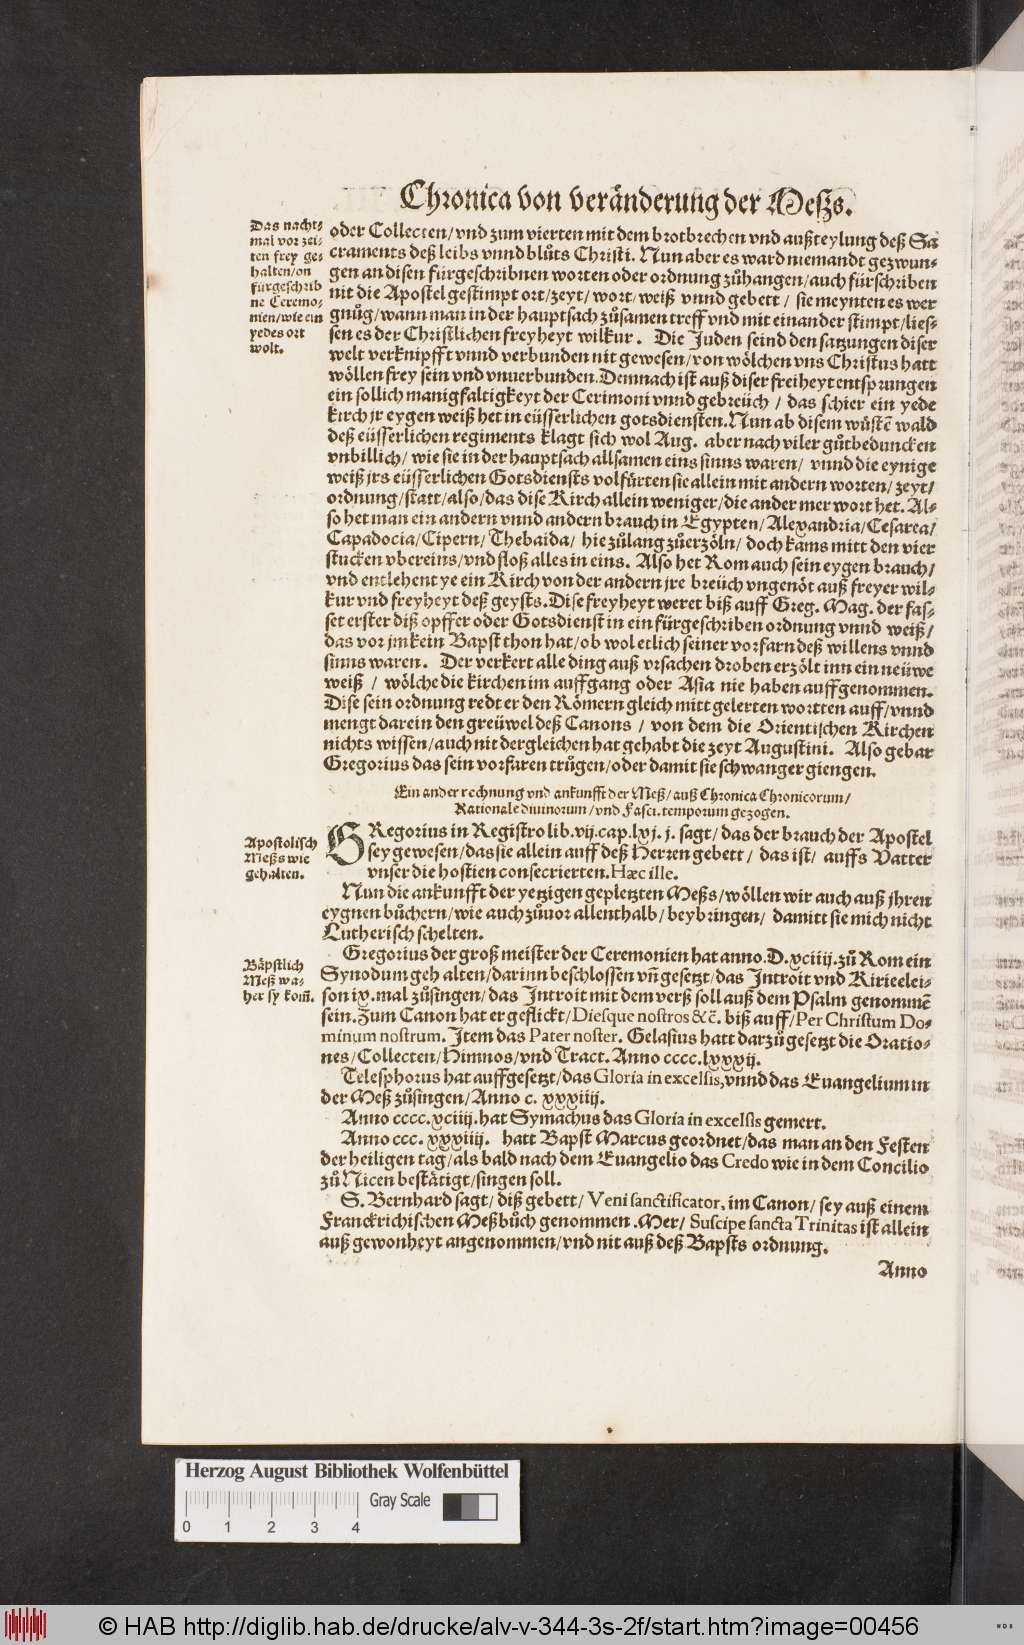 Chronica von veränderung der Meßs.
Das nacht-
mal vor zei-
ten frey ge-
halten/on
fürgeschrib
ne Ceremo-
nien/wie ein
yedes ort
wolt.
oder Collecten/vnd zum vierten mit dem brotbrechen vnd außteylung deß Sa
craments deß leibs vnnd blůts Christi. Nun aber es ward niemandt gezwun-
gen an disen fürgeschribnen worten oder ordnung zůhangen/auch fürschriben
nit die Apostel gestimpt ort/zeyt/wort/weiß vnnd gebett/ sie meynten es wer
gnůg/wann man in der hauptsach zůsamen treff vnd mit einander stimpt/lies-
sen es der Christlichen freyheyt wilkur. Die Juden seind den satzungen diser
welt verknipfft vnnd verbunden nit gewesen/von wölchen vns Christus hatt
wöllen frey sein vnd vnuerbunden. Demnach ist auß diser freiheyt entsprungen
ein sollich manigfaltigkeyt der Cerimoni vnnd gebreüch/ das schier ein yede
kirch jr eygen weiß het in eüsserlichen gotsdiensten. Nun ab disem wůstē wald
deß eüsserlichen regiments klagt sich wol Aug. aber nach viler gůtbeduncken
vnbillich/wie sie in der hauptsach allsamen eins sinns waren/ vnnd die eynige
weiß jrs eüsserlichen Gotsdiensts volfürten sie allein mit andern worten/zeyt/
ordnung/statt/also/das dise Kirch allein weniger/die ander mer wort het. Al-
so het man ein andern vnnd andern brauch in Egypten/Alexandria/Cesarea/
Capadocia/Cipern/Thebaida/ hie zůlang zůerzöln/doch kams mitt den vier
stucken vbereins/vnd floß alles in eins. Also het Rom auch sein eygen brauch/
vnd entlehent ye ein Kirch von der andern jre breüch vngenöt auß freyer wil-
kur vnd freyheyt deß geysts. Dise freyheyt weret biß auff Greg. Mag. der fas-
set erster diß opffer oder Gotsdienst in ein fürgeschriben ordnung vnnd weiß/
das vor jm kein Bapst thon hat/ob wol etlich seiner vorfarn deß willens vnnd
sinns waren. Der verkert alle ding auß vrsachen droben erzölt inn ein neüwe
weiß/ wölche die kirchen im auffgang oder Asia nie haben auffgenommen.
Dise sein ordnung redt er den Römern gleich mitt gelerten wortten auff/vnnd
mengt darein den greüwel deß Canons/ von dem die Orientischen Kirchen
nichts wissen/auch nit dergleichen hat gehabt die zeyt Augustini. Also gebar
Gregorius das sein vorfaren trůgen/oder damit sie schwanger giengen.
Ein ander rechnung vnd ankunfft der Meß/auß Chronica Chronicorum/
Rationale diuinorum/vnd Fasci. temporum gezogen.
Apostolisch
Meßs wie
gehalten.
GRegorius in Registro lib. vij. cap. lxj. j. sagt/das der brauch der Apostel
sey gewesen/das sie allein auff deß Herren gebett/ das ist/ auffs Vatter
vnser die hostien consecrierten. Hæc ille.
Nun die ankunfft der yetzigen gepletzten Meßs/wöllen wir auch auß jhren
eygnen bůchern/wie auch zůuor allenthalb/beybringen/ damitt sie mich nicht
Lutherisch schelten.
Bäpstlich
Meß wa-
her sy kom̄.
Gregorius der groß meister der Ceremonien hat anno. D. xciiij. zů Rom ein
Synodum gehalten/darinn beschlossen vñ gesetzt/das Introit vnd Kirieelei-
son ix. mal zůsingen/das Introit mit dem verß soll auß dem Psalm genommē
sein. Zum Canon hat er geflickt/Diesque nostros &c̄. biß auff/Per Christum Do-
minum nostrum. Item das Pater noster. Gelasius hatt darzů gesetzt die Oratio-
nes/Collecten/Himnos/vnd Tract. Anno cccc. lxxxij.
Telesphorus hat auffgesetzt/das Gloria in excelsis, vnnd das Euangelium in
der Meß zůsingen/Anno c. xxxiiij.
Anno cccc. xciiij. hat Symachus das Gloria in excelsis gemert.
Anno ccc. xxxiiij. hatt Bapst Marcus geordnet/das man an den Festen
der heiligen tag/als bald nach dem Euangelio das Credo wie in dem Concilio
zů Nicen bestätigt/singen soll.
S. Bernhard sagt/ diß gebett/ Veni sanctificator, im Canon/ sey auß einem
Franckrichischen Meßbůch genommen. Mer/ Suscipe sancta Trinitas ist allein
auß gewonheyt angenommen/vnd nit auß deß Bapsts ordnung.
Anno
Herzog August Bibliothek Wolfenbüttel
Gray Scale
0 1 2 3 4
© HAB http://diglib.hab.de/drucke/alv-v-344-3s-2f/start.htm?image=00456